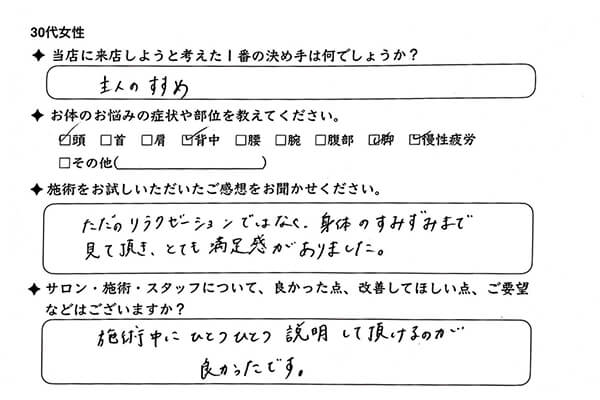 30代女性
✦ 当店に来店しようと考えた1番の決め手は何でしょうか？
主人のすすめ
✦ お体のお悩みの症状や部位を教えてください。
☑頭 □首 □肩 ☑背中 □腰 □腕 □腹部 ☑脚 ☑慢性疲労
□その他( )
✦ 施術をお試しいただいたご感想をお聞かせください。
ただのリラクゼーションではなく、身体のすみずみまで
見て頂き、とても満足感がありました。
✦ サロン・施術・スタッフについて、良かった点、改善してほしい点、ご要望
などはございますか？
施術中にひとつひとつ説明して頂けるのが
良かったです。